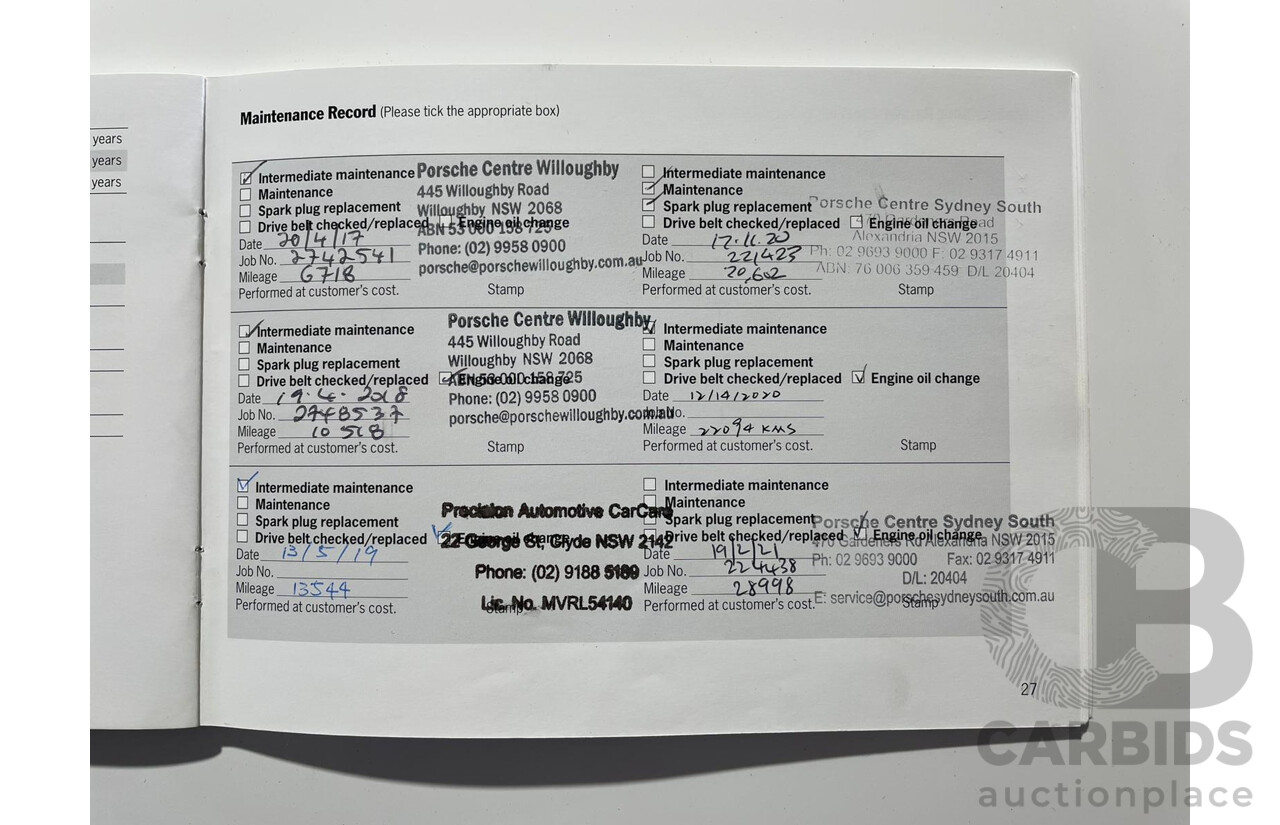 years
years
years
Maintenance Record (Please tick the appropriate box)
Intermediate maintenance
Maintenance
Spark plug replacement
Drive belt checked/replaced Engine oil change
Date 20/4/17
Job No. 2742541
Mileage 6718
Performed at customer's cost. Stamp
Porsche Centre Willoughby
445 Willoughby Road
Willoughby NSW 2068
ABN 53 000 158 725
Phone: (02) 9958 0900
porsche@porschewilloughby.com.au
Intermediate maintenance
Maintenance
Spark plug replacement
Drive belt checked/replaced Engine oil change
Date 17.11.20
Job No. 221423
Mileage 20,602
Performed at customer's cost. Stamp
Porsche Centre Sydney South
Road
Alexandria NSW 2015
Ph: 02 9693 9000 F: 02 9317 4911
ABN: 76 006 359 459 D/L 20404
Intermediate maintenance
Maintenance
Spark plug replacement
Drive belt checked/replaced Engine oil change
Date 19.4.2018
Job No. 2748537
Mileage 10 518
Performed at customer's cost. Stamp
Porsche Centre Willoughby
445 Willoughby Road
Willoughby NSW 2068
ABN 53 000 158 725
Phone: (02) 9958 0900
porsche@porschewilloughby.com.au
Intermediate maintenance
Maintenance
Spark plug replacement
Drive belt checked/replaced Engine oil change
Date 12/14/2020
Job No.
Mileage 22094 KMS
Performed at customer's cost. Stamp
Intermediate maintenance
Maintenance
Spark plug replacement
Drive belt checked/replaced
Date 13/5/19
Job No.
Mileage 13544
Performed at customer's cost. Stamp
Precision Automotive CarCare
22 George St, Clyde NSW 2142
Phone: (02) 9188 5189
Lic. No. MVRL54140
Intermediate maintenance
Maintenance
Spark plug replacement
Drive belt checked/replaced Engine oil change
Date 19/2/21
Job No. 224438
Mileage 28998
Performed at customer's cost. Stamp
Porsche Centre Sydney South
470 Gardeners Rd Alexandria NSW 2015
Ph: 02 9693 9000 Fax: 02 9317 4911
D/L: 20404
E: service@porschesydneysouth.com.au
27
CB
CARBIDS
auctionplace